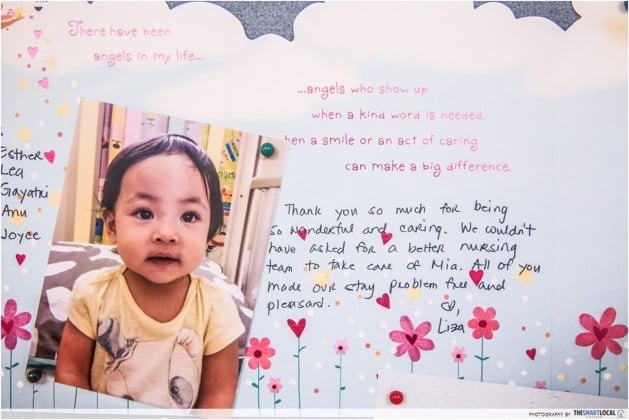 There have been
angels in my life...
...angels who show up
when a kind word is needed,
hen a smile or an act of caring
can make a big difference.
Esther
Lea
Gayatri
Anu
Joyce
Thank you so much for being
so wonderful and caring. We couldn't
have asked for a better nursing
team to take care of Mia. All of you
made our stay problem free and
pleasant.
Liza
PHOTOGRAPHY BY THESMARTLOCAL